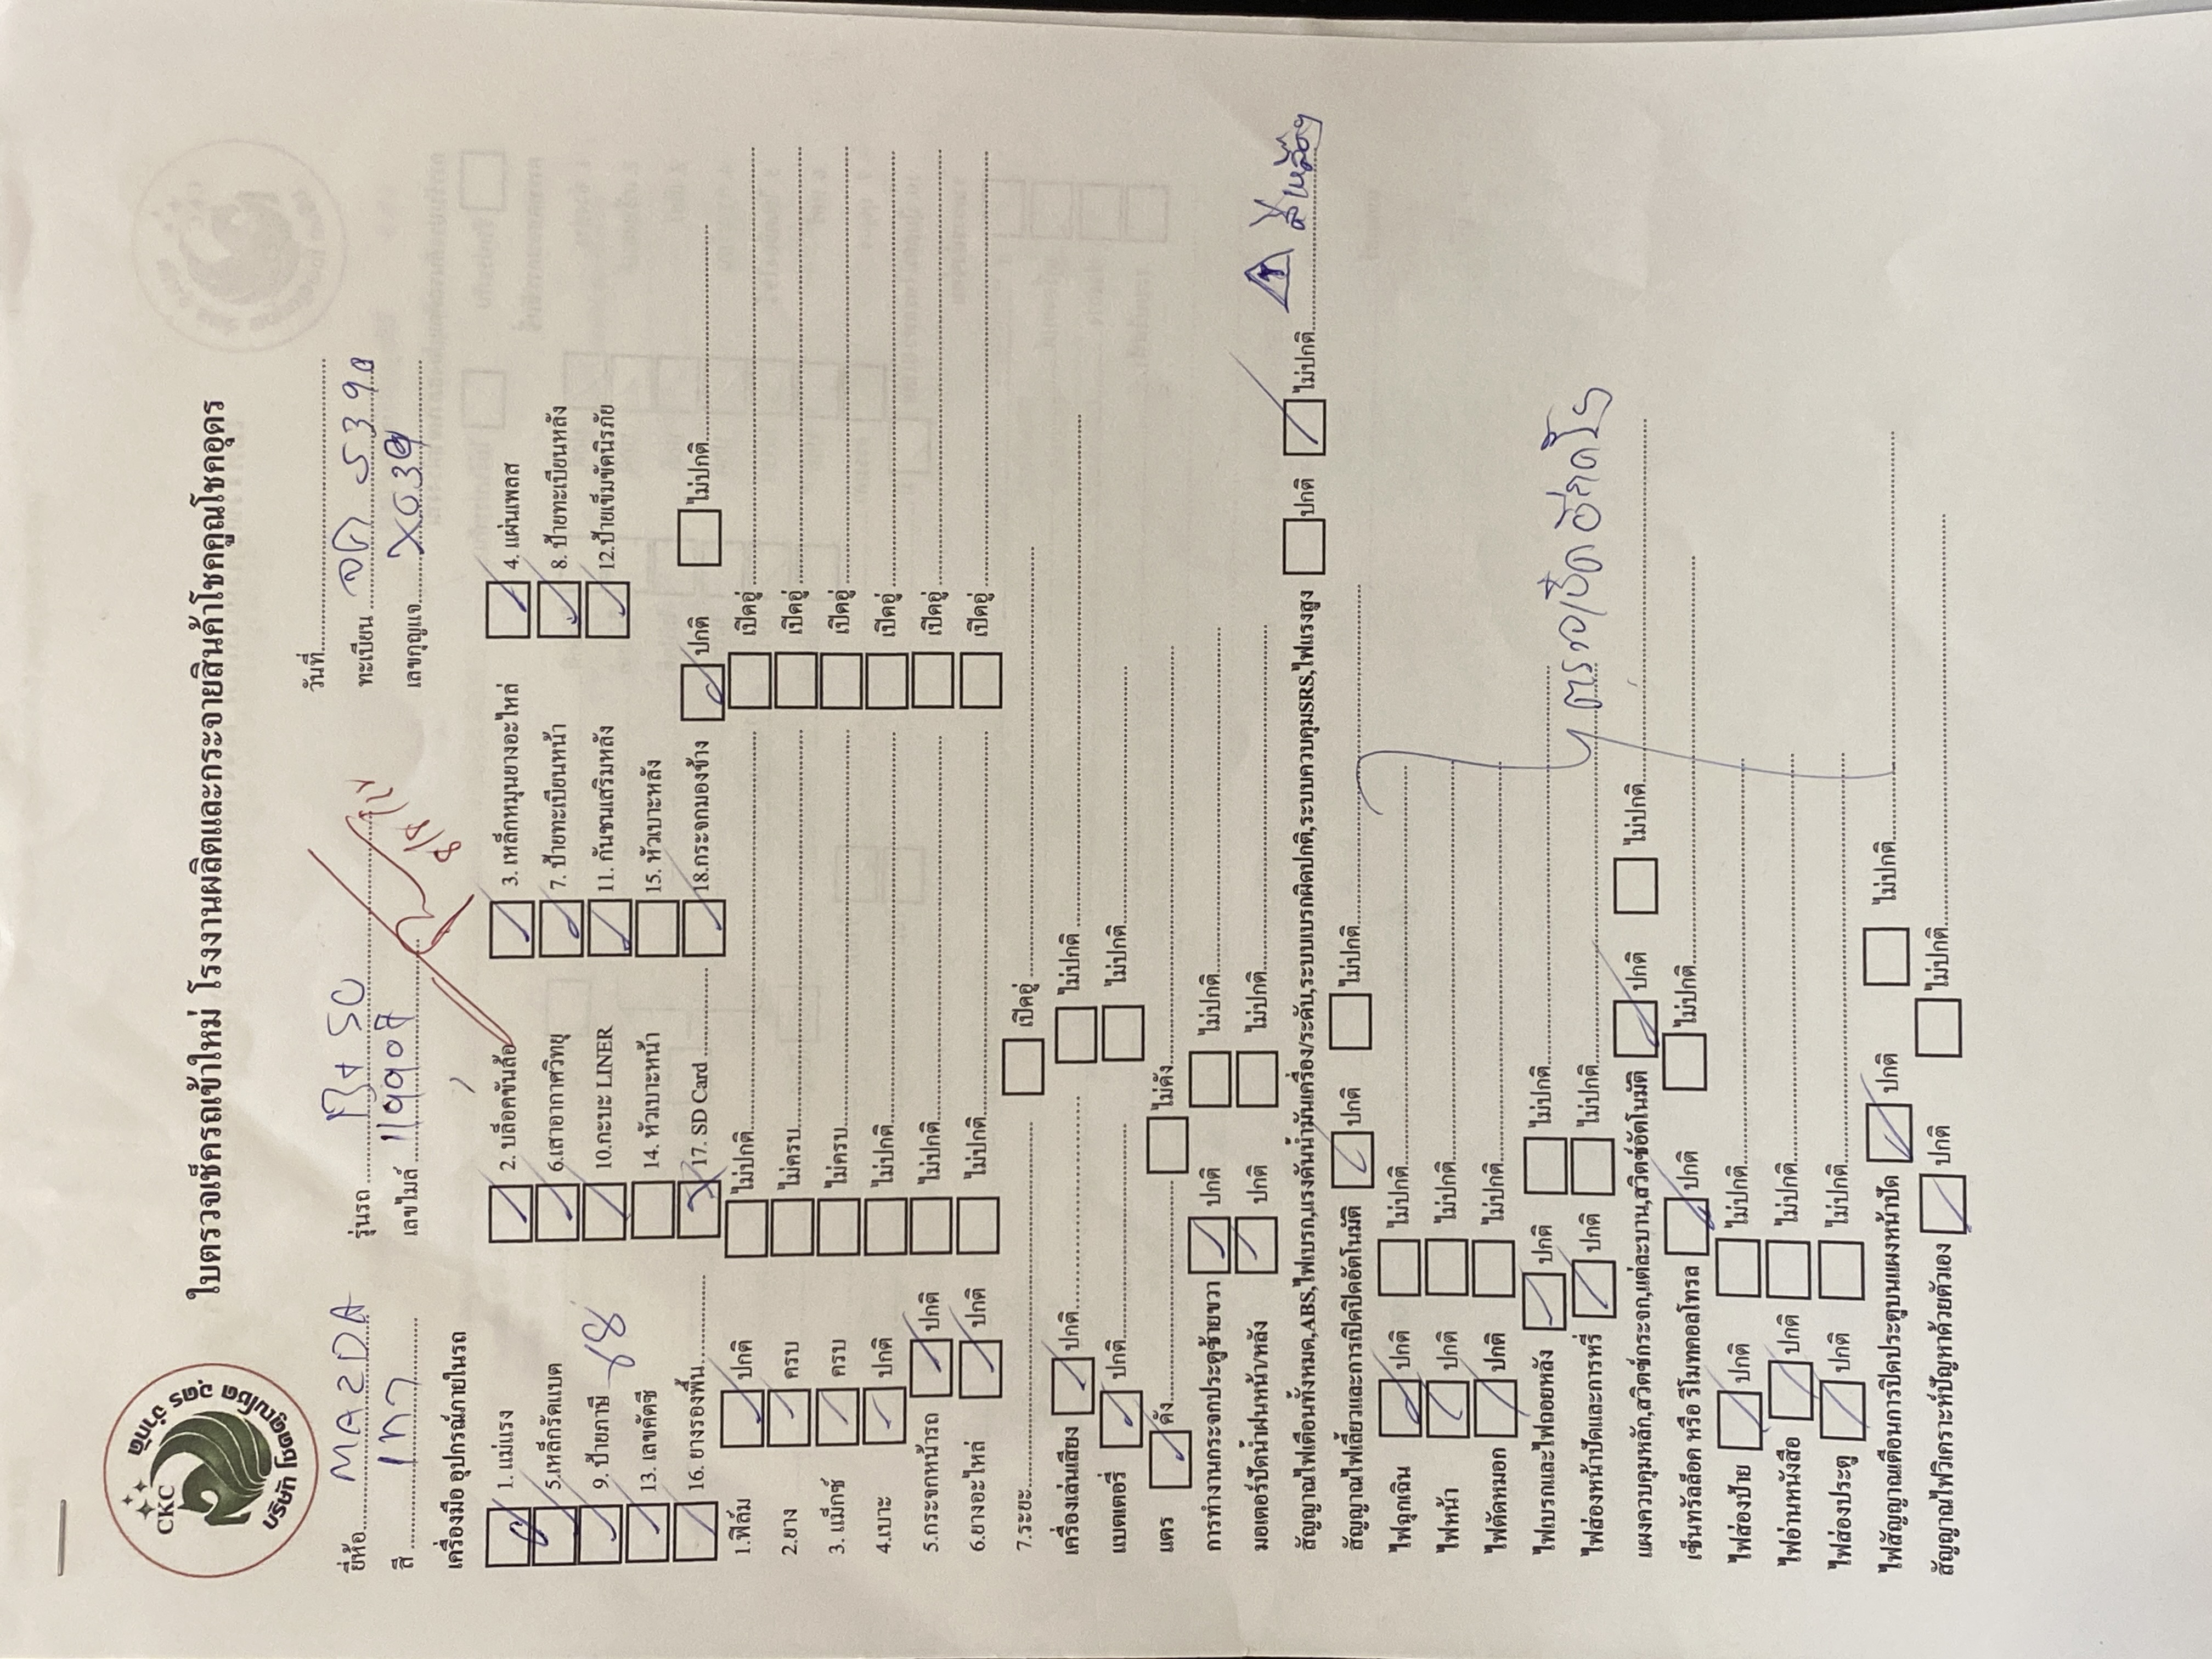 CKC
บริษัท โชคคูณโชค อุดร จำกัด
ใบตรวจเช็ครถเข้าใหม่ โรงงานผลิตและกระจายสินค้าโชคคูณโชคอุดร
วันที่
ยี่ห้อ MAZDA รุ่นรถ BT 50 ทะเบียน
สี เทา เลขไมล์ เลขกุญแจ X039
เครื่องมือ อุปกรณ์ภายในรถ
1. แม่แรง 2. บล็อคขันล้อ 3. เหล็กหมุนยางอะไหล่ 4. แผ่นเพลส
5.เหล็กรัดแบต 6.เสาอากาศวิทยุ 7. ป้ายทะเบียนหน้า 8. ป้ายทะเบียนหลัง
9. ป้ายภาษี 68 10.กะบะ LINER 11. กันชนเสริมหลัง 12.ป้ายเข็มขัดนิรภัย
13. เลขคัตซี 14. หัวเบาะหน้า 15. หัวเบาะหลัง
16. ยางรองพื้น 17. SD Card 18.กระจกมองข้าง ปกติ ไม่ปกติ
1.ฟิล์ม ปกติ ไม่ปกติ เปิดอู่
2.ยาง ครบ ไม่ครบ เปิดอู่
3. แม็กซ์ ครบ ไม่ครบ เปิดอู่
4.เบาะ ปกติ ไม่ปกติ เปิดอู่
5.กระจกหน้ารถ ปกติ ไม่ปกติ เปิดอู่
6.ยางอะไหล่ ปกติ ไม่ปกติ เปิดอู่
7.ระยะ เปิดอู่
เครื่องเล่นเสียง ปกติ ไม่ปกติ
แบตเตอรี่ ปกติ ไม่ปกติ
แตร ดัง ไม่ดัง
การทำงานกระจกประตูซ้ายขวา ปกติ ไม่ปกติ
มอเตอร์ปัดน้ำฝนหน้า/หลัง ปกติ ไม่ปกติ
สัญญาณไฟเตือนทั้งหมด,ABS,ไฟเบรก,แรงดันน้ำมันเครื่อง/ระดับ,ระบบเบรกผิดปกติ,ระบบควบคุมSRS,ไฟแรงสูง ปกติ ไม่ปกติ สีเหลือง
สัญญาณไฟเลี้ยวและการเปิดปิดอัตโนมัติ ปกติ ไม่ปกติ
ไฟฉุกเฉิน ปกติ ไม่ปกติ
ไฟหน้า ปกติ ไม่ปกติ
ไฟตัดหมอก ปกติ ไม่ปกติ
ไฟเบรกและไฟถอยหลัง ปกติ ไม่ปกติ
ไฟส่องหน้าปัดและการหรี่ ปกติ ไม่ปกติ
แผงควบคุมหลัก,สวิตซ์กระจก,แต่ละบาน,สวิตซ์อัตโนมัติ ปกติ ไม่ปกติ
เซ็นทรัลล็อค หรือ รีโมทคอลโทรล ปกติ ไม่ปกติ
ไฟส่องป้าย ปกติ ไม่ปกติ
ไฟอ่านหนังสือ ปกติ ไม่ปกติ
ไฟส่องประตู ปกติ ไม่ปกติ
ไฟสัญญาณเตือนการปิดประตูบนแผงหน้าปัด ปกติ ไม่ปกติ
สัญญาณไฟวิเคราะห์ปัญหาด้วยตัวเอง ปกติ ไม่ปกติ